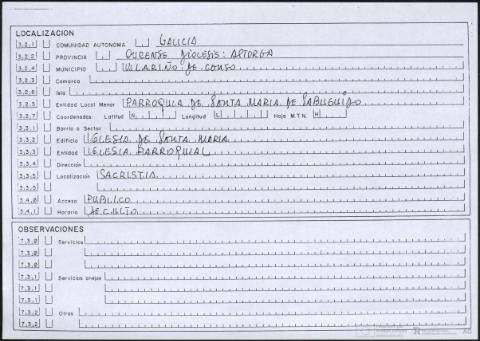 LOCALIZACION
3.2.1 COMUNIDAD AUTONOMA GALICIA
3.2.2 PROVINCIA OURENSE DIOCESIS: ASTORGA
3.2.4 MUNICIPIO VILARIÑO DE CONSO
3.2.3 Comarca
3.2.6 Isla
3.2.5 Entidad Local Menor PARROQUIA DE SANTA MARIA DE SABUGUIDO
3.2.7 Coordenadas: Latitud N Longitud Hoja M.T.N. H
3.3.1 Barrio o Sector
3.3.2 Edificio IGLESIA DE SANTA MARIA
3.3.3 Entidad IGLESIA PARROQUIAL
3.3.4 Dirección
3.3.5 Localización SACRISTIA
3.3.5
3.4.0 Acceso PUBLICO
3.4.1 Horario DE CULTO
OBSERVACIONES
7.3.0 Servicios
7.3.0
7.3.0
7.3.1 Servicios anejos
7.3.1
7.3.1
7.3.2 Otros
7.3.2